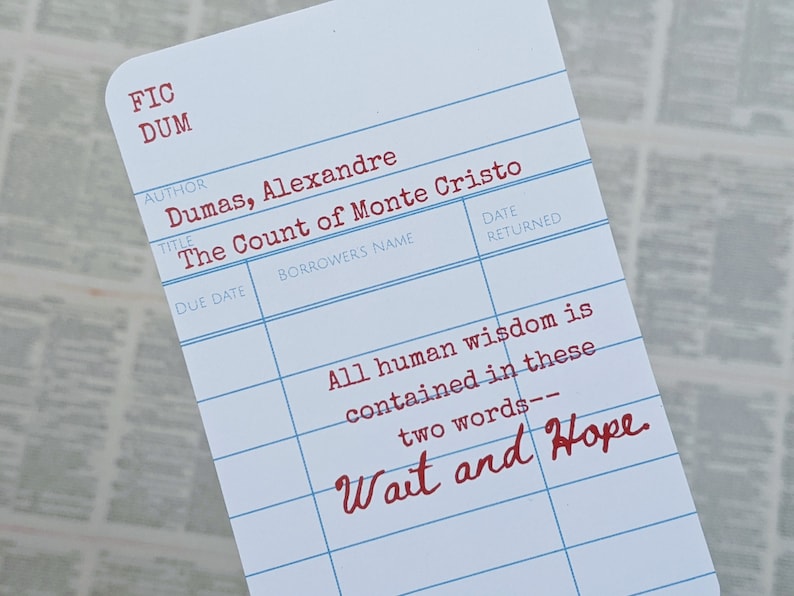 FIC
DUM
AUTHOR
Dumas, Alexandre
TITLE
The Count of Monte Cristo
DUE DATE
BORROWER'S NAME
DATE
RETURNED
All human wisdom is
contained in these
two words--
Wait and Hope.